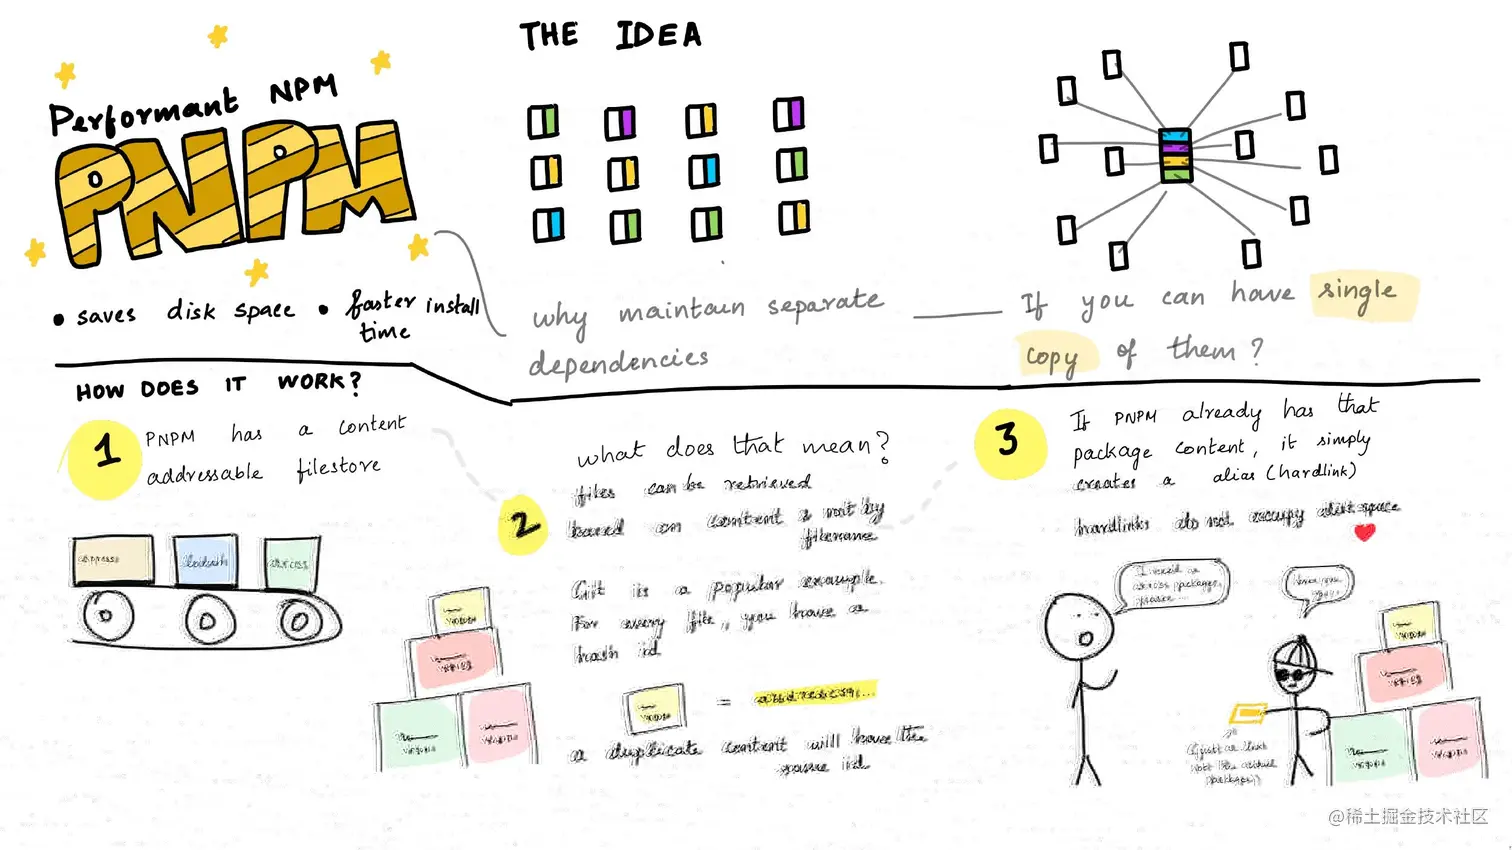 Performant NPM
PNPM
• saves disk space • faster install
time
THE IDEA
why maintain separate
dependencies
If you can have single
copy of them?
HOW DOES IT WORK?
1
PNPM has a content
addressable filestore
express
2
what does that mean?
files can be retrieved
based on content & not by
filename
Git is a popular example.
For every file, you have a
hash id
=
a duplicate content will have the
same id
3
If PNPM already has that
package content, it simply
creates a alias (hardlink)
hardlinks do not occupy disk space
I need
across packages,
please...
Here you
go...
(just a link
not the actual
package)
@稀土掘金技术社区